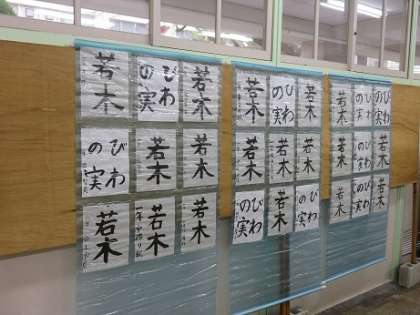 若木
びわ
の実
若木
びわ
の実
若木
若木
若木
若木
若木
若木
びわ
の実
若木
若木
若木
若木
びわ
の実
若木
びわ
の実
若木
びわ
の実
びわ
の実
若木
びわ
の実
若木
若木
びわ
の実
若木